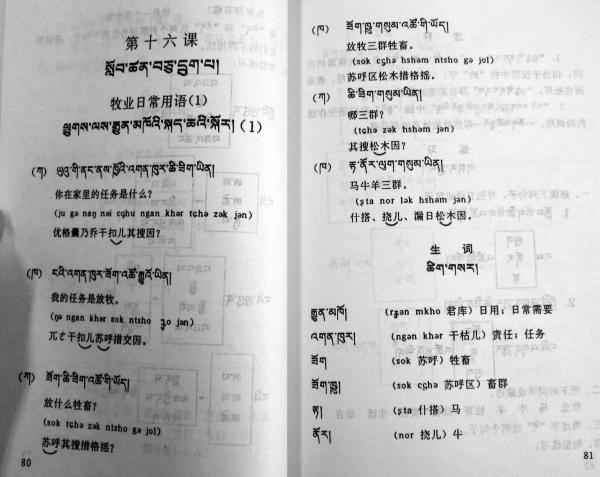 第十六课
སློབ་ཚན་བཅུ་དྲུག་པ།
牧业日常用语(1)
ཕྱུགས་ལས་རྒྱུན་མཁོའི་སྐད་ཆའི་སྐོར། (1)
(ཀ)
你在家里的任务是什么?
(ju gə naŋ nai cçhu ngan khər tçhə zək jən)
优格囊乃乔干扣儿其搜因?
(ཁ) ངའི་འགན་ཁུར་ཟོག་འཚོ་རྒྱུའི་ཡིན།
我的任务是放牧。
(ŋə ngan khər sok ntsho ʒo jən)
兀ㄜ干扣儿苏呼措交因。
(ཀ) ཟོག་ཆི་ཟིག་འཚོ་གི་ཡོད།
放什么牲畜?
(sok tçhə zək ntsho gə jol)
苏呼其搜措格摇?
80
(ཁ) ཟོག་ཁྱུ་གསུམ་འཚོ་གི་ཡོད།
放牧三群牲畜。
(sok cçhə hshəm ntsho gə jol)
苏呼区松木措格摇。
(ཀ) ཆི་ཟིག་གསུམ་ཡིན།
哪三群?
(tçhə zək hshəm jən)
其搜松木因?
(ཁ) རྟ་ནོར་ལུག་གསུམ་ཡིན།
马牛羊三群。
(ʂta nor lək hshəm jən)
什搭、挠儿、漏日松木因。
生 词
ཚིག་གསར།
རྒྱུན་མཁོ། (rʓən mkho 君库) 日用;日常需要
འགན་ཁུར། (ngən khər 干枯儿) 责任;任务
ཟོག (sok 苏呼) 牲畜
ཟོག་ཁྱུ། (sok cçhə 苏呼区) 畜群
རྟ། (ʂta 什搭) 马
ནོར། (nor 挠儿) 牛
81